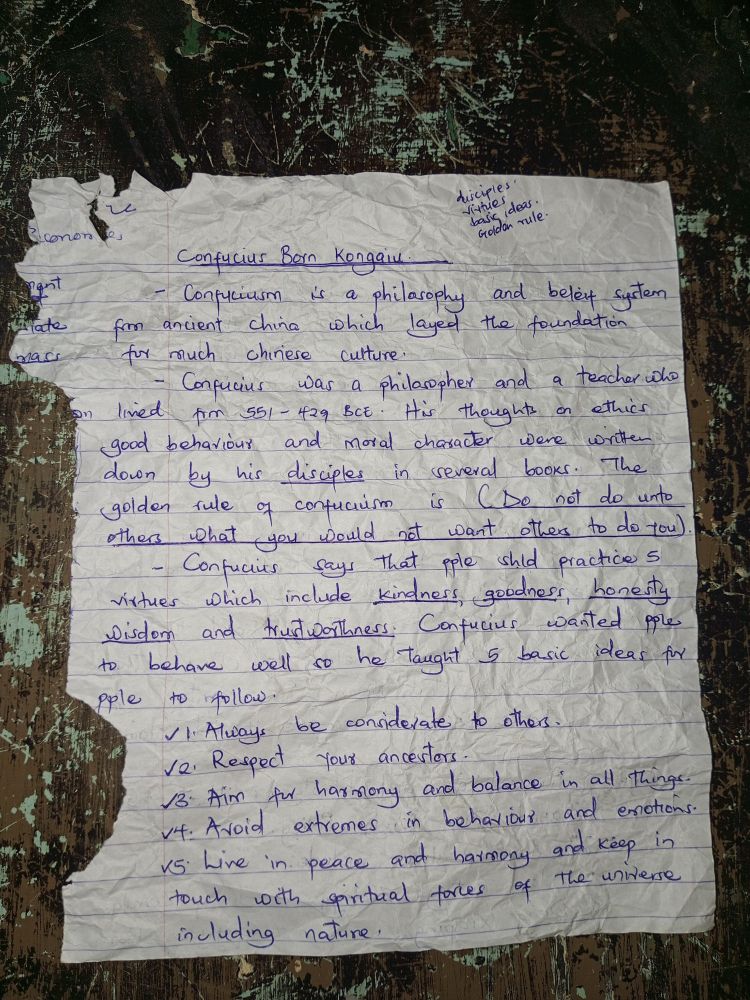 disciples.
virtues
basic ideas.
Golden rule.
Economies
Confucius Born Kongaiu.
- Confuciusm is a philosophy and beleif system
from ancient china which layed the foundation
mass for much chinese culture.
- Confucius was a philosopher and a teacher who
on lived frm 551 - 429 BCE. His thoughts on ethics
good behaviour and moral character were written
down by his disciples in several books. The
golden rule of confuciusm is (Do not do unto
others what you would not want others to do you).
- Confucius says that pple shld practice 5
virtues which include kindness, goodness, honesty
wisdom and trustworthness. Confucius wanted pple
to behave well so he taught 5 basic ideas for
pple to follow.
✓1. Always be considerate to others.
✓2. Respect your ancestors.
✓3. Aim for harmony and balance in all things.
✓4. Avoid extremes in behaviour and emotions.
✓5. Live in peace and harmony and keep in
touch with spiritual forces of the universe
including nature.